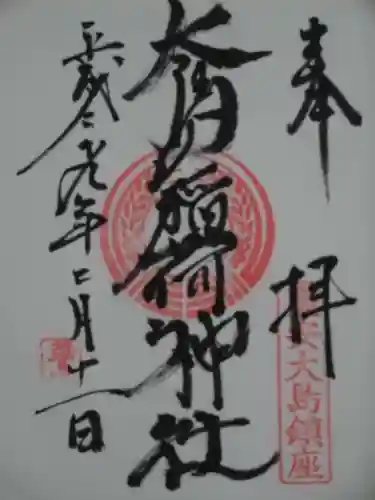 奉拝
大島稲荷神社
大島鎮座
平成二十九年二月十一日